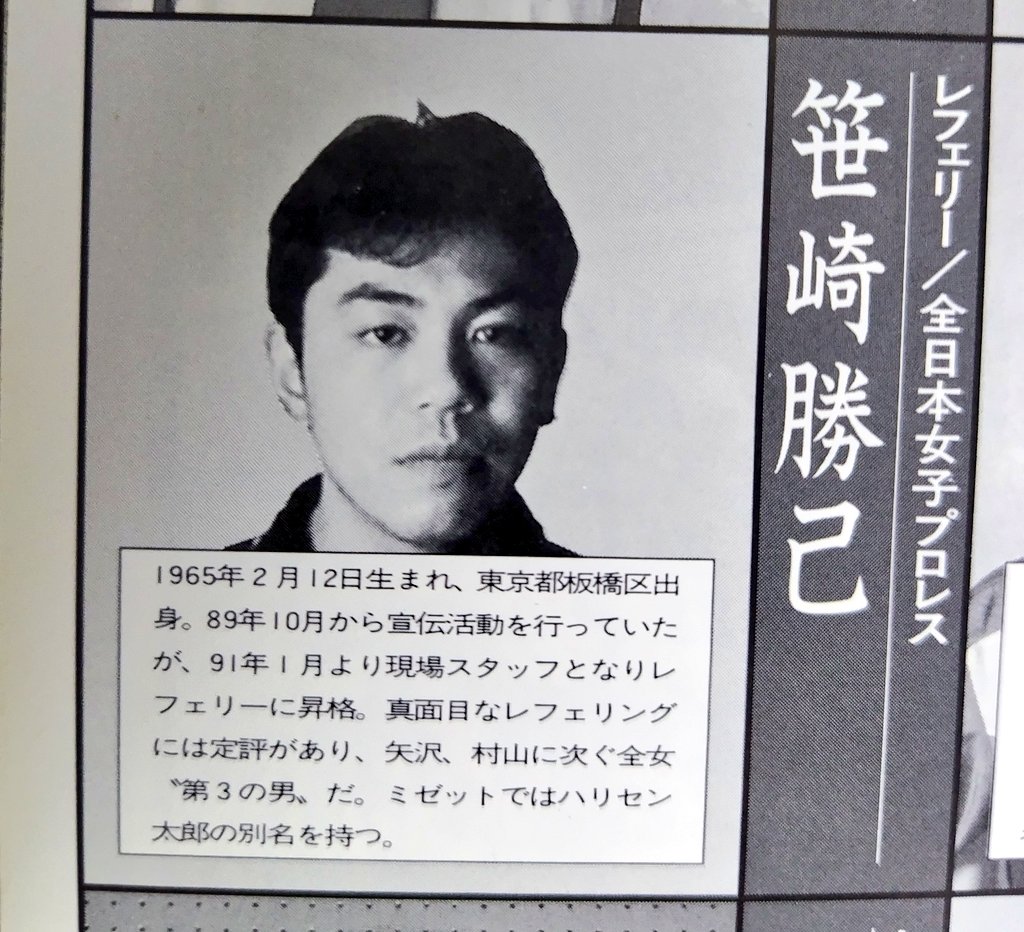 レフェリー／全日本女子プロレス
笹崎勝己
1965年2月12日生まれ、東京都板橋区出
身。89年10月から宣伝活動を行っていた
が、91年1月より現場スタッフとなりレ
フェリーに昇格。真面目なレフェリング
には定評があり、矢沢、村山に次ぐ全女
〝第3の男〟だ。ミゼットではハリセン
太郎の別名を持つ。